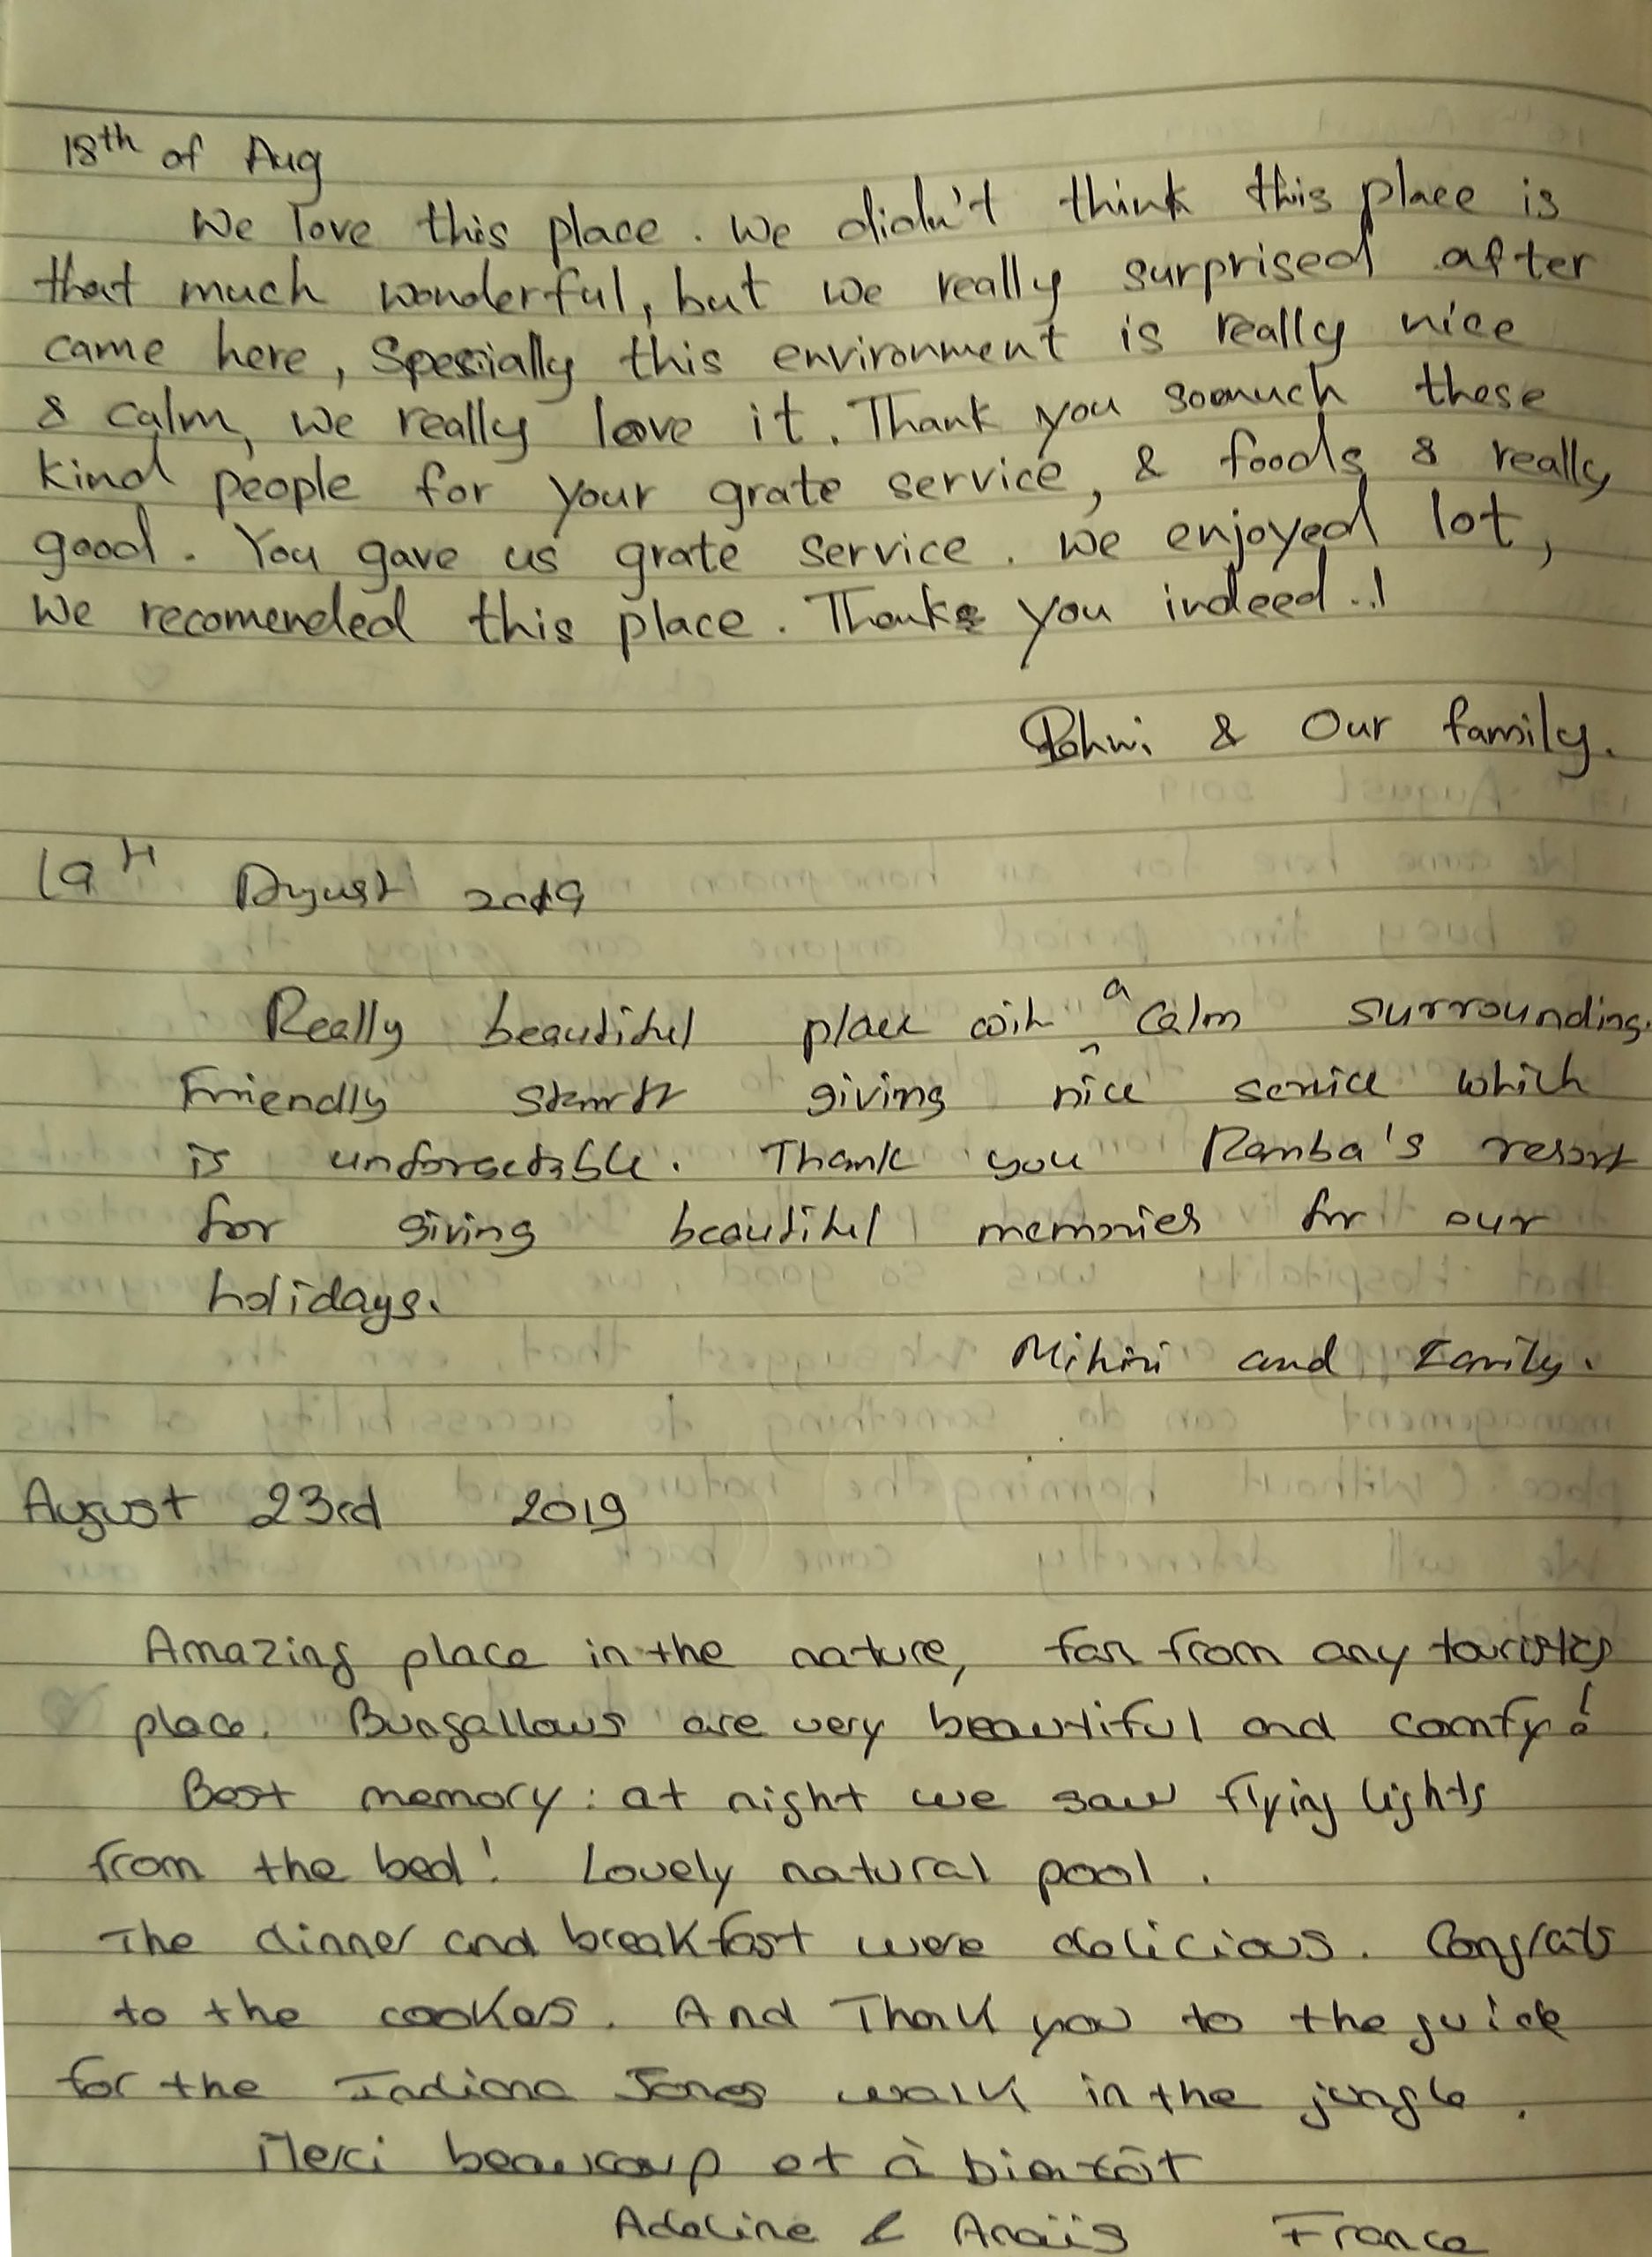 18th of Aug
We love this place. We didn't think this place is
that much wonderful, but we really surprised after
came here, Specially this environment is really nice
& calm, we really love it. Thank you soomuch these
kind people for your grate service, & foods & really
good. You gave us grate service. We enjoyed lot,
We recomended this place. Thank you indeed..!
& Our family.
19th August 2019
Really beautiful place with a Calm surrounding.
Friendly staff giving nice service which
is unforgetable. Thank you Ramba's resort
for giving beautiful memories for our
holidays.
Mihiri and Family.
August 23rd 2019
Amazing place in the nature, far from any touristics
place. Bungallows are very beautiful and comfy!
Best memory: at night we saw flying lights
from the bed! Lovely natural pool.
The dinner and breakfast were delicious. Congrats
to the cookes. And Thank you to the guide
for the Indiana Jones walk in the jungle.
Merci beaucoup et à bientôt
Adeline & Anaïs France